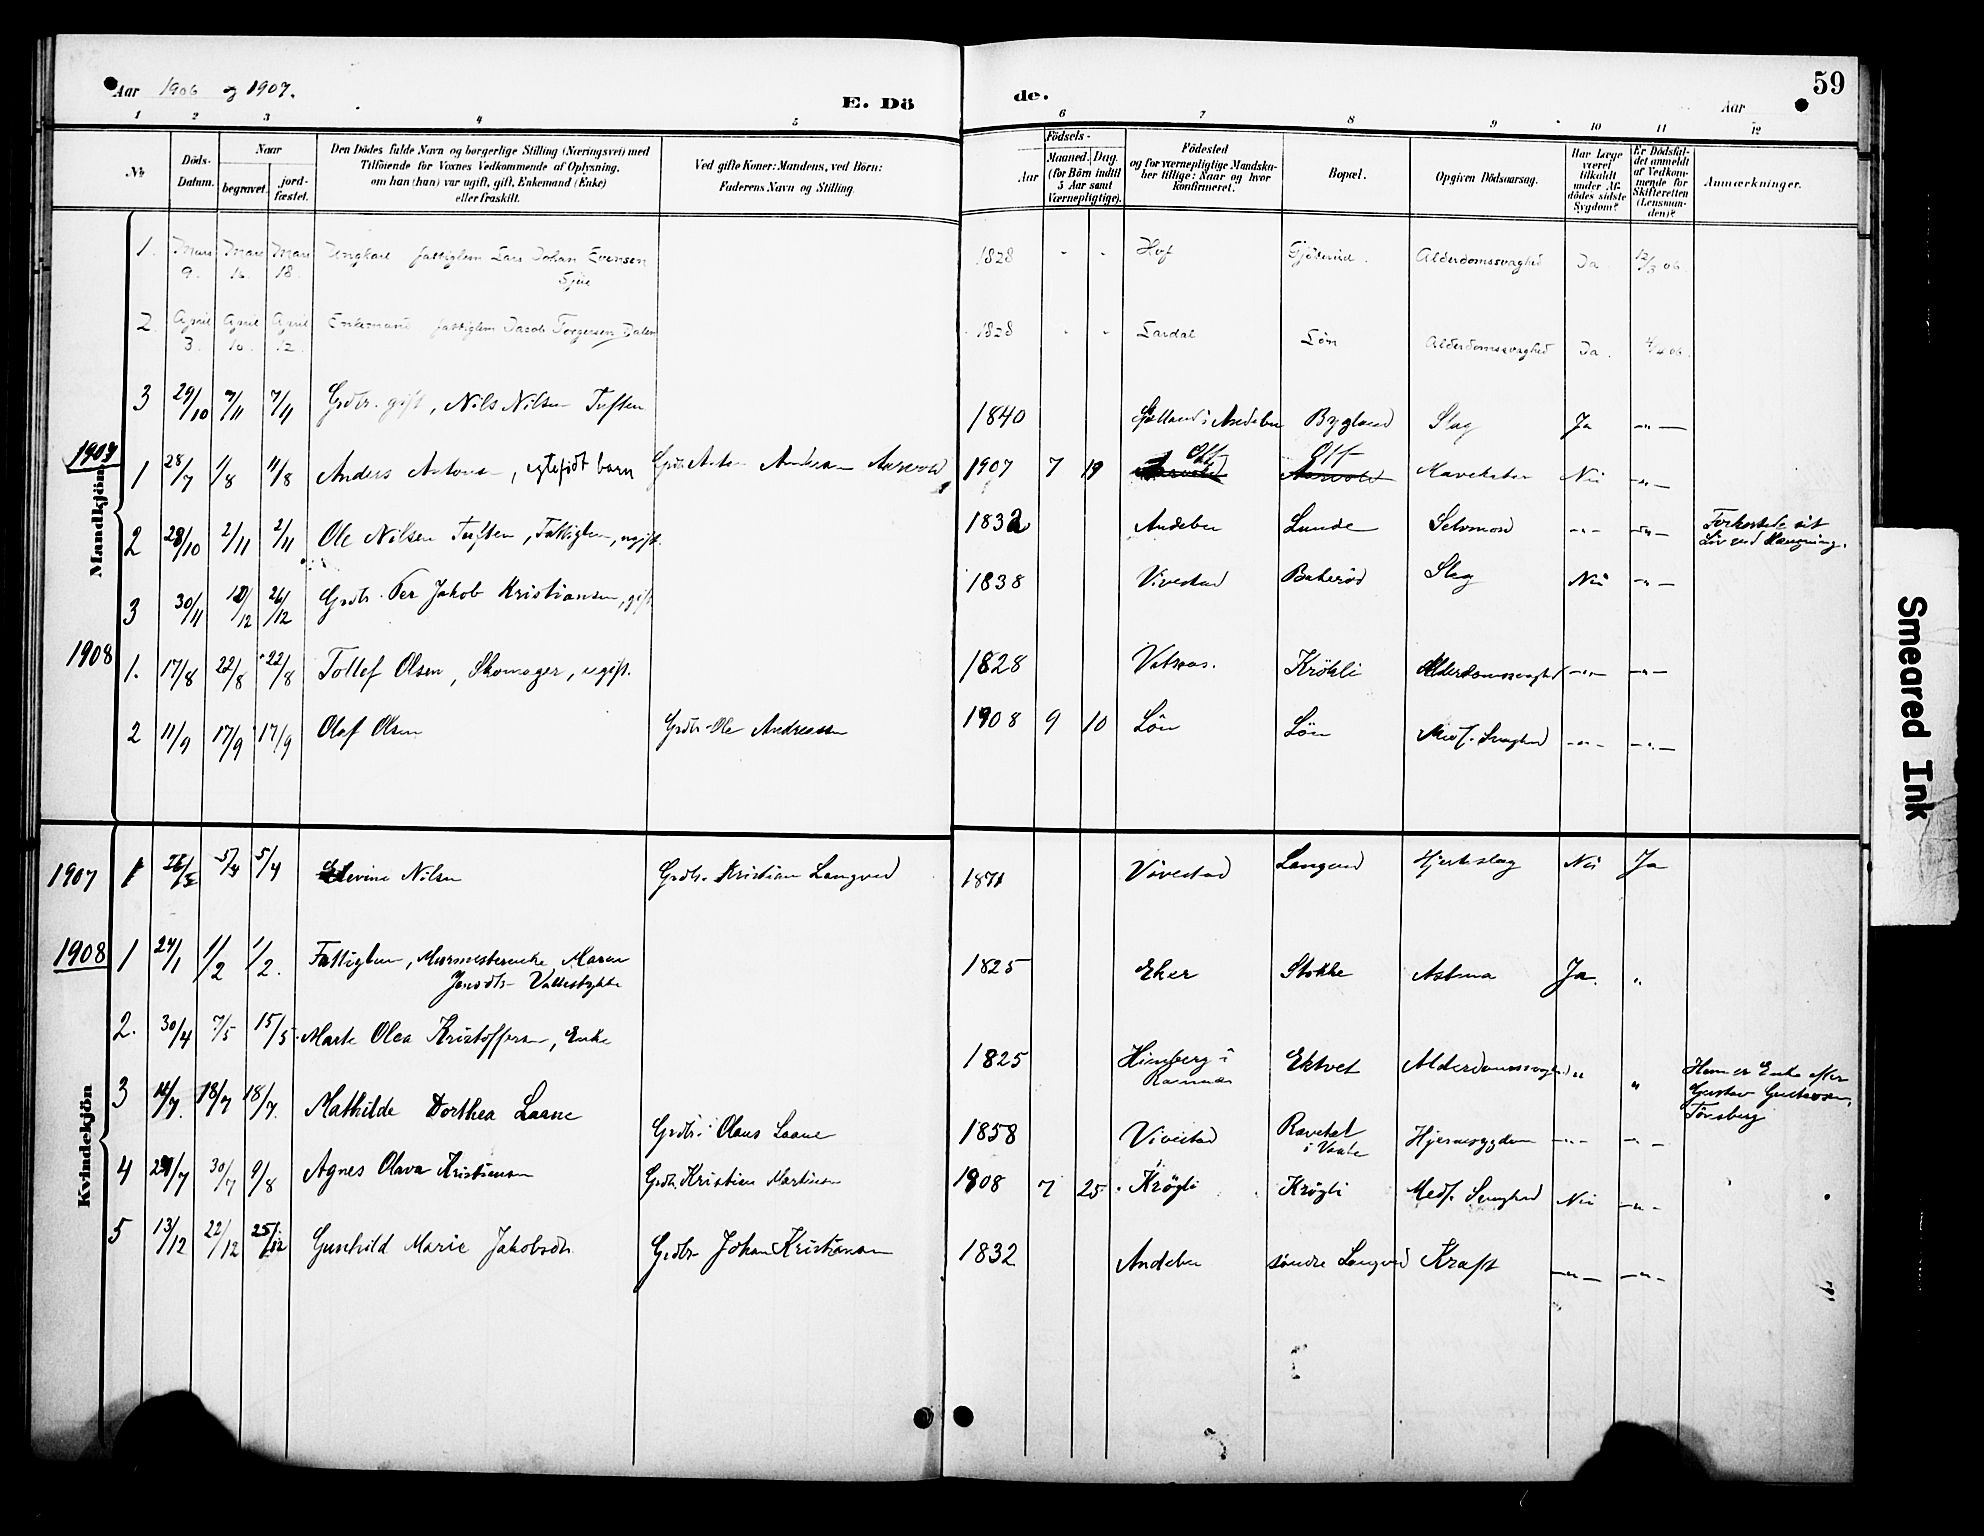 Aar 1906 og 1907.
E. Dö
de.
Aar
59
1 2 3 4 5
6 7 8 9 10 11 12
No
Döds-Datum.
Naar
begravet.
jord-fæstet.
Den Dödes fulde Navn og borgerlige Stilling (Næringsvei) med
Tilföiende for Voxnes Vedkommende af Oplysning,
om han (hun) var ugift, gift, Enkemand (Enke)
eller fraskilt.
Ved gifte Koner: Mandens, ved Börn:
Faderens Navn og Stilling.
Födsels-
Aar
Maaned. Dag.
(for Börn indtil
5 Aar samt
Værnepligtige).
Födested
og for værnepligtige Mandska-
ber tillige: Naar og hvor
konfirmeret.
Bopæl.
Opgiven Dödsaarsag.
Har Læge
været
tilkaldt
under Af-
dödes sidste
Sygdom?
Er Dödsfal-
det anmeldt
af Vedkom-
mende for
Skifteretten
(Lensman-
den)?
Anmærkninger.
Mandkjön
1. Mars 9. Mars 16. Mars 18. Ungkarl fattiglem Lars Johan Evensen 1828 - - Hof Alderdomssvaghed Ja 12/3 06.
2. April 3. April 10. April 12. Enkemand fattiglem Jacob Torgersen Dalen 1828 - - Lardal Lön Alderdomssvaghed Ja. 4/4 06.
3 29/10 7/11 7/11 Grdbr. gift, Nils Nilsen Tuften 1840 i Andebu Bygland Slag Ja -"-
1907
1 28/7 1/8 11/8 Anders Antonsen, egtefödt barn Aasevold 1907 7 19 Nei -"-
2 28/10 2/11 2/11 Ole Nilsen Tuften, Fattiglem, ugift. 1832 Andebu Lunde Selvmord -"- -"- Forkortede sit
Liv ved Hængning.
3 30/11 12/12 26/12 Grdbr. Per Jakob Kristiansen, gift 1838 Vivestad Bakeröd Slag Nei -"-
1908
1. 17/8 22/8 22/8 Tollef Olsen, Skomager, ugift. 1828 Vatnaas. Krökli Alderdomssvaghed -"- -"-
2 11/9 17/9 17/9 Olaf Olsen Grdbr. Ole Andreassen 1908 9 10 Lön Lön Medf. Svaghed -"- -"-
Kvindekjön
1907 1 5/4 5/4 Elevine Nilsen Grdbr. Kristian Langved 1871 Vivestad Langved Hjerteslag Nei Ja
1908 1 27/1 1/2 1/2. Fattiglem, Murmesterenke Maren
Jensdtr. 1825 Eker Stokke Astma Ja. "
2. 30/4 7/5 15/5 Marte Olea Kristoffersen, Enke 1825 Himberg i
Ramnæs Ektvet Alderdomssvaghed " " Hun er Enke efter
Gustav Gustavsen,
Tönsberg
3 14/7. 18/7 18/7. Mathilde Dorthea Laane Grdbr. Olaus Laane 1858 Vivestad i Vaale Hjernesygdom -"- -"-
4 29/7 30/7 9/8 Agnes Olava Kristiansen Grdbr. Kristian Martinsen 1908 7 25 Krøgli Krøgli Medf. Svaghed Nei -"-
5 13/12 22/12 25/12 Gunhild Marie Jakobsdtr. Grdbr. Johan Kristiansen 1832 Andebu söndre Langved Kræft -"- -"-
Smeared Ink